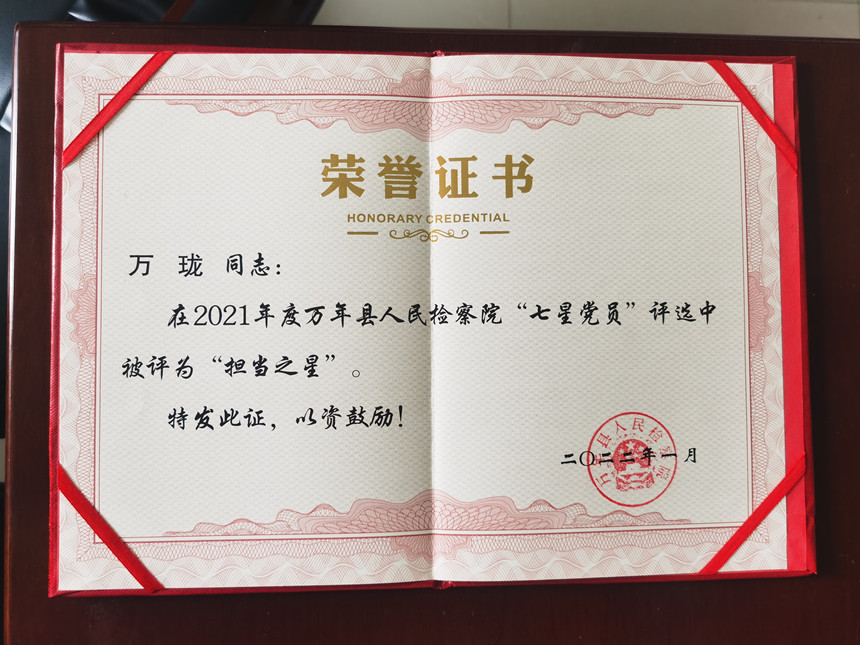 荣誉证书
HONORARY CREDENTIAL
万 珑 同志：
在2021年度万年县人民检察院“七星党员”评选中
被评为“担当之星”。
特发此证，以资鼓励！
万年县人民检察院
二〇二二年一月